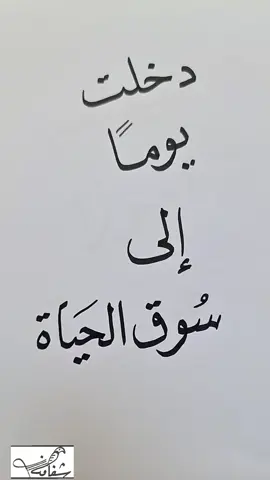 دخلت
يوماً
إلى
سُوق الحَياة